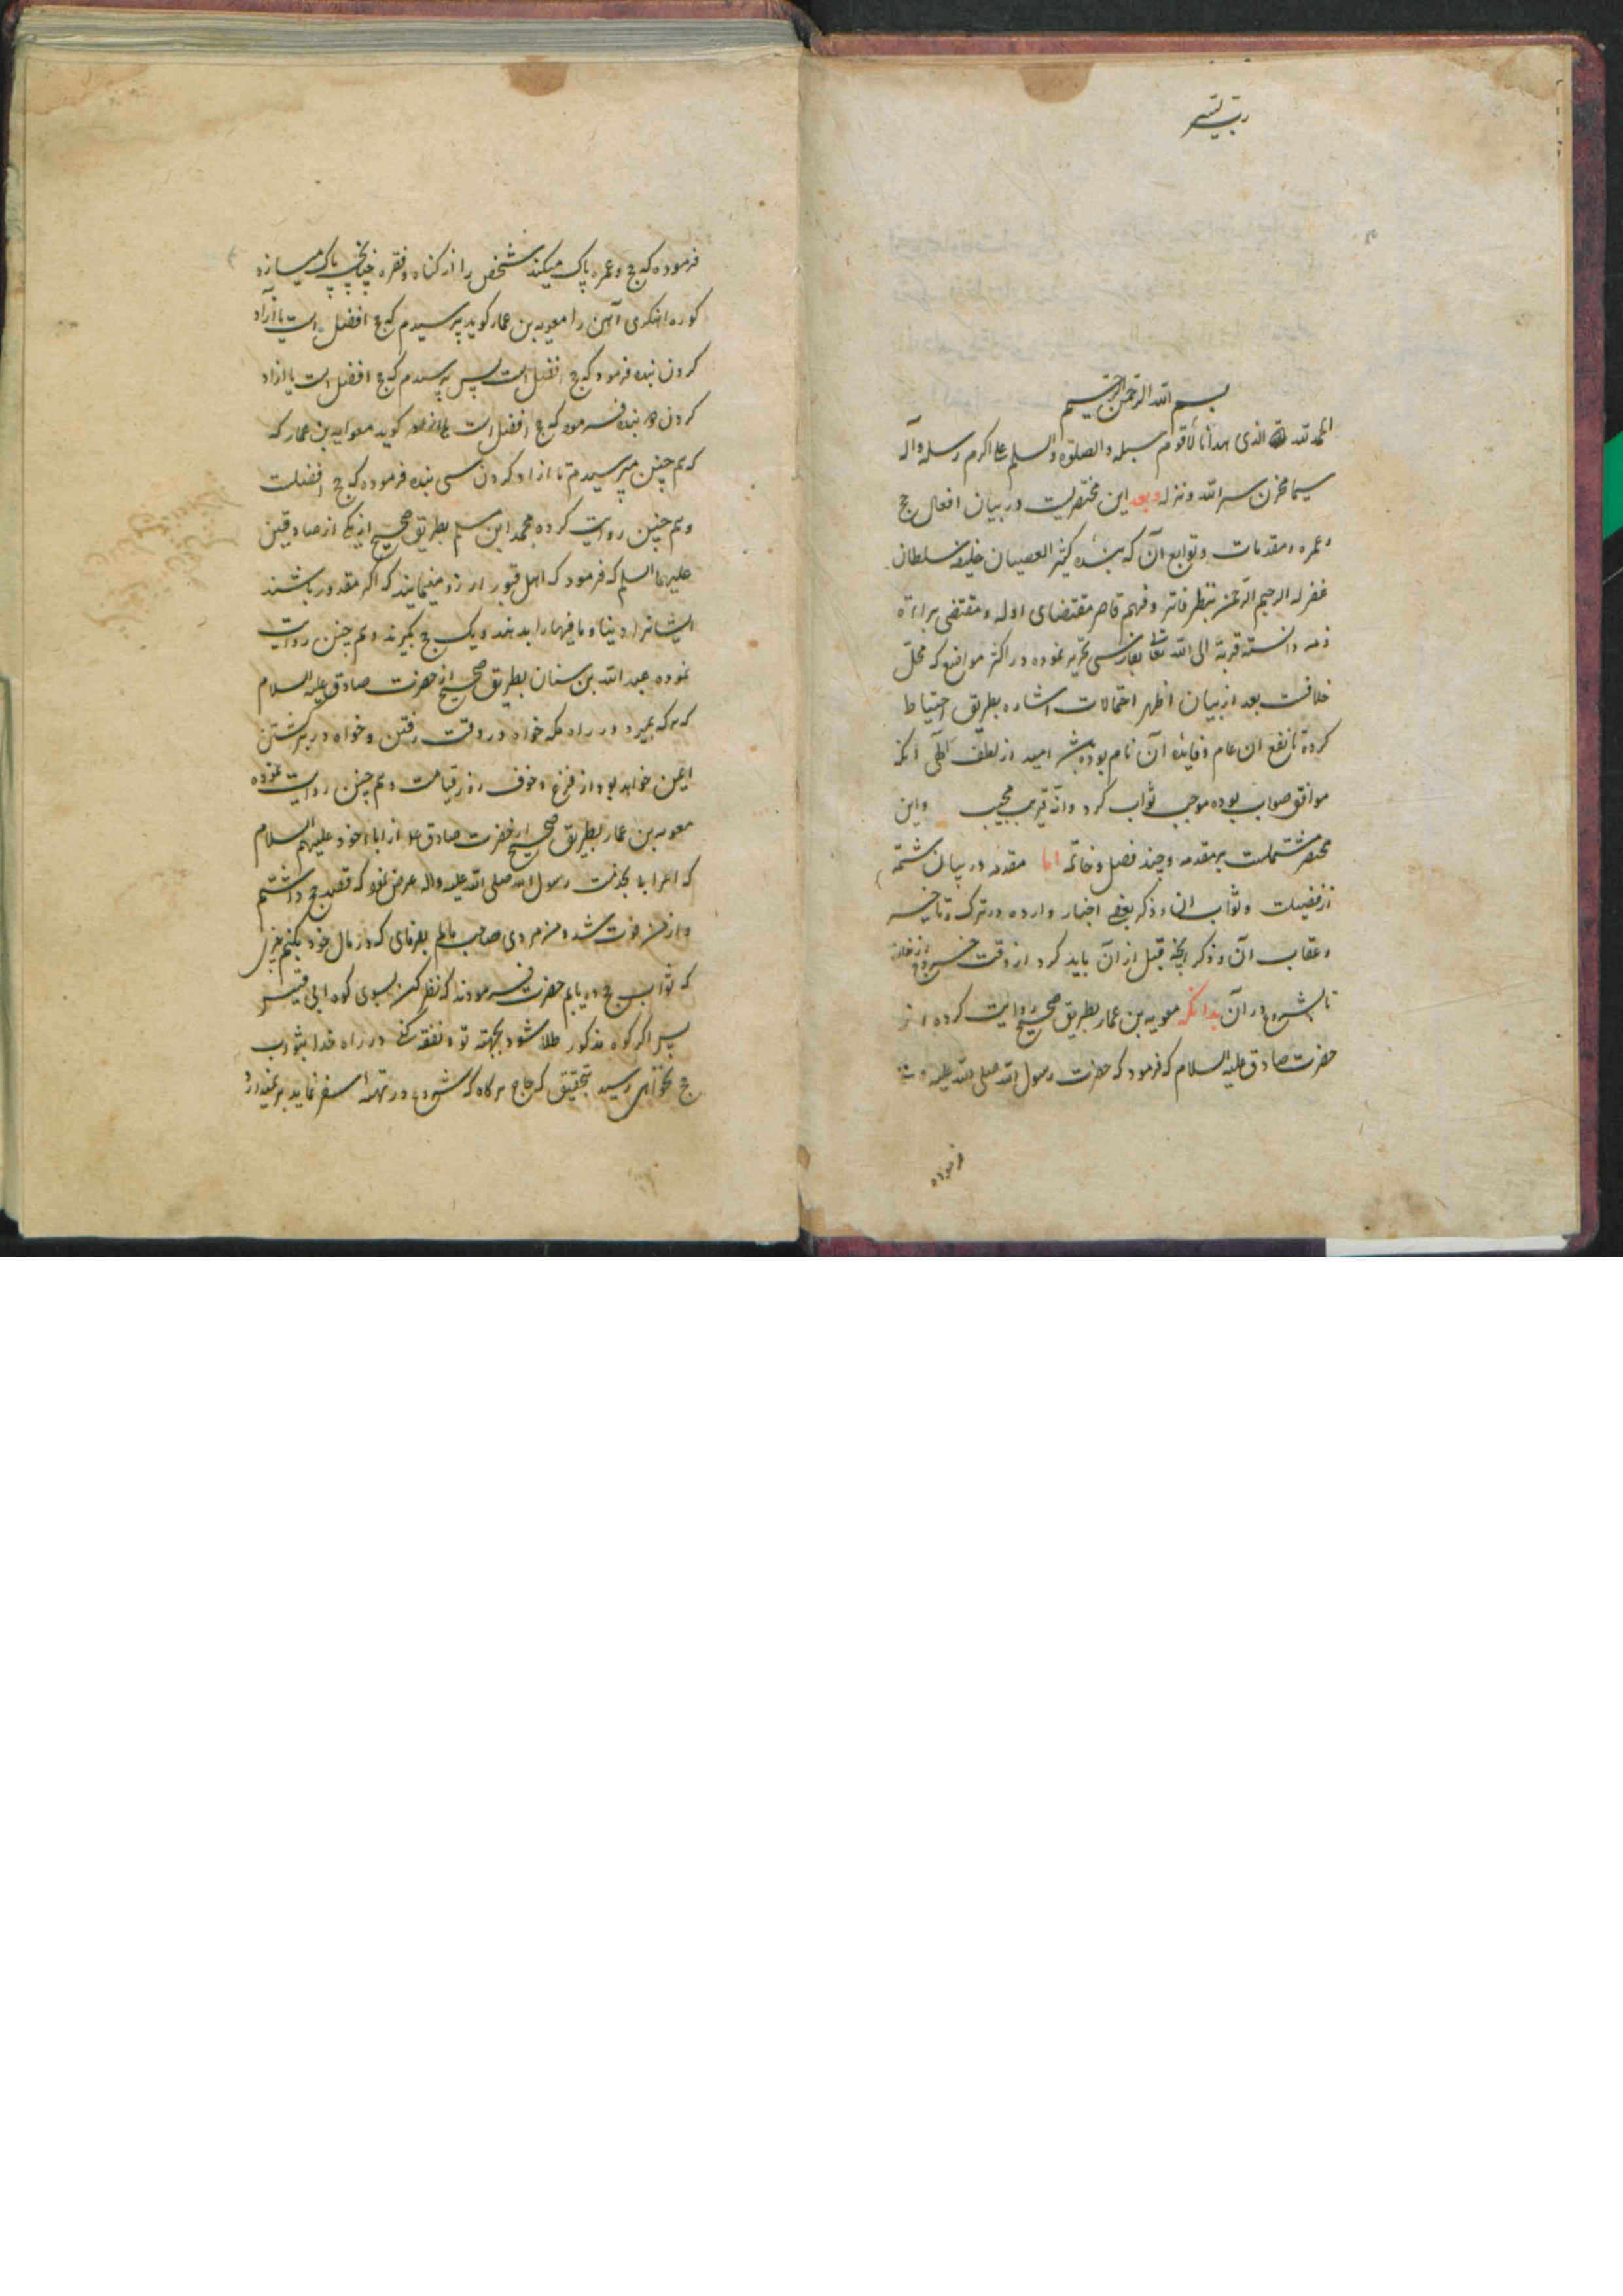 رب یسر
بسم الله الرحمن الرحیم
الحمد لله الذی هدانا لاقوم سبله والصلوة والسلم علی اکرم رسله وآله
سیما مخزن سر الله ونزله وبعد این مختصریست در بیان افعال حج
وعمره ومقدمات وتوابع آن که بنده کثیر العصیان خلیفه سلطان
غفر له الرحیم الرحمن بنظر فاتر وفهم قاصر مقتضای ادله ومقتضی براءة
ذمه دانسته قربة الی الله تعالی بفارسی تحریر نموده در اکثر مواضع که محل
خلافست بعد از بیان اظهر احتمالات اشاره بطریق احتیاط
کرده تا نفع ان عام وفایده آن تام بوده باشد امید از لطف الهی آنکه
موافق صواب بوده موجب ثواب کرد وانه قریب مجیب واین
مختصر مشتملست بر مقدمه وچند فصل وخاتمه اما مقدمه در بیان شمه
از فضیلت وثواب انها وذکر بعضی اخبار وارده در ترک وتاخیر
وعقاب آن وذکر انچه قبل از آن باید کرد از وقت خروج از خانه
تا شروع در آن بدانکه معویه بن عمار بطریق صحیح روایت کرده از
حضرت صادق علیه السلام که فرمود که حضرت رسول الله صلی الله علیه وآله
فرموده
فرموده که حج وعمره پاک میکند شخص را از کناه وفقر چنانچه پاک میسازد
کوره اهنکری آهن را معویه بن عمار کوید پرسیدم که حج افضل است یا آزاد
کردن بنده فرمود که حج افضل است پس پرسیدم که حج افضل است یا ازاد
کردن ده بنده فرمود که حج افضل است کوید معاویه بن عمار که
که هم چنین میپرسیدم تا ازاد کردن سی بنده فرموده که حج افضلست
وهم چنین روایت کرده محمد ابن مسلم بطریق صحیح از یکی از صادقین
علیهما السلم که فرمود که اهل قبور ارزو مینمایند که اکر مقدور باشند
ایشانرا دنیا وما فیها را بدهند ویک حج بکیرند وهم چنین روایت
نموده عبد الله بن سنان بطریق صحیح از حضرت صادق علیه السلام
که هر که بمیرد در راه مکه خواه در وقت رفتن وخواه در برکشتن
ایمن خواهد بود از فزع وخوف روز قیامت وهم چنین روایت نموده
معویه بن عمار بطریق صحیح از حضرت صادق ع از اباء خود علیهم السلام
که اعرابی بخدمت رسول الله صلی الله علیه واله عرض نمود که قصد حج داشتم
واز من فوت شد ومن مردی صاحب مالم بفرمای که در مال خود بکنم چیزی
که ثواب حج دریابم حضرت فرمودند که نظر کن بسوی کوه ابی قبیس
پس اکر کوه مذکور طلا شود بجهته تو ونفقه کنی در راه خدا بثواب
حج نخواهی رسید بتحقیق که حاج هرکاه که شروع در تهیه سفر نماید برنمیدارد